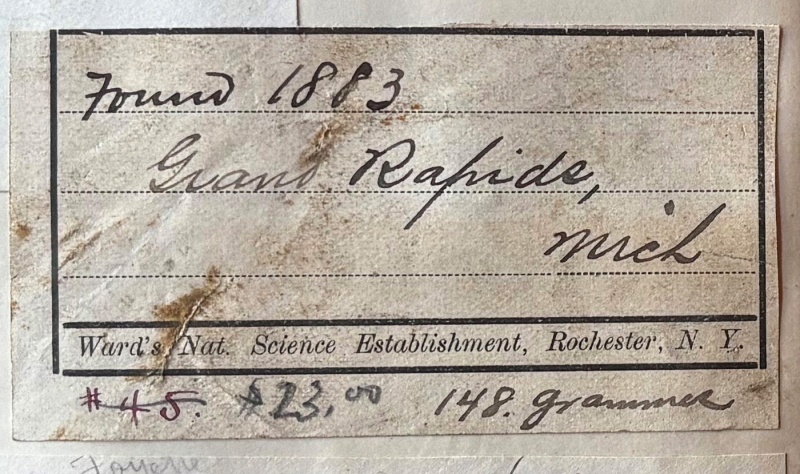 Found 1883
Grand Rapids,
Mich
Ward's Nat. Science Establishment, Rochester, N. Y.
#45. $23.00 148. grammes